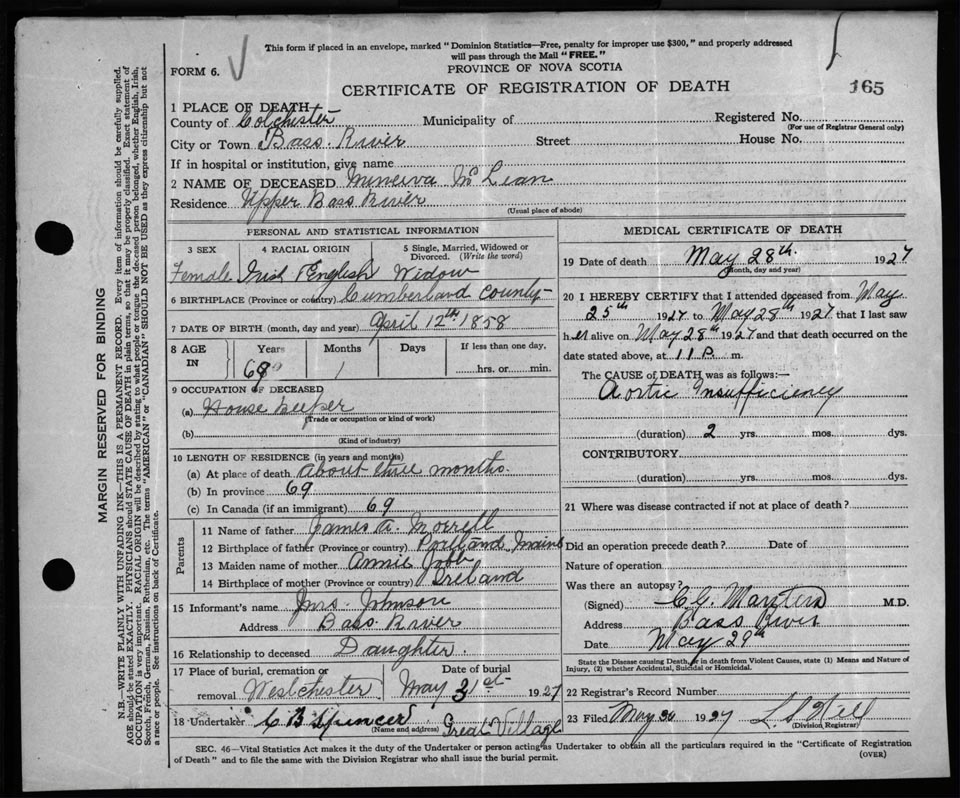 This form if placed in an envelope, marked "Dominion Statistics—Free, penalty for improper use $300," and properly addressed
will pass through the Mail "FREE."
FORM 6.
PROVINCE OF NOVA SCOTIA
CERTIFICATE OF REGISTRATION OF DEATH
165
1 PLACE OF DEATH
County of Colchester Municipality of Registered No.
(For use of Registrar General only)
City or Town Bass River Street House No.
If in hospital or institution, give name
2 NAME OF DECEASED Minerva McLean
Residence Upper Bass River
(Usual place of abode)
PERSONAL AND STATISTICAL INFORMATION
3 SEX 4 RACIAL ORIGIN 5 Single, Married, Widowed or
Divorced. (Write the word)
Female Irish English Widow
6 BIRTHPLACE (Province or country) Cumberland County
7 DATE OF BIRTH (month, day and year) April 12th 1858
8 AGE IN Years Months Days If less than one day.
69 1 hrs. or min.
9 OCCUPATION OF DECEASED
(a) House keeper
(Trade or occupation or kind of work)
(b)
(Kind of industry)
10 LENGTH OF RESIDENCE (in years and months)
(a) At place of death about three months.
(b) In province 69
(c) In Canada (if an immigrant) 69
Parents
11 Name of father James A. Morrell
12 Birthplace of father (Province or country) Portland Maine
13 Maiden name of mother Annie
14 Birthplace of mother (Province or country) Ireland
15 Informant's name Mrs. Johnson
Address Bass River
16 Relationship to deceased Daughter.
17 Place of burial, cremation or Date of burial
removal Westchester May 31st 1927
18 Undertaker C B Spencer Great Village
(Name and address)
MEDICAL CERTIFICATE OF DEATH
19 Date of death May 28th. 1927
(Month, day and year)
20 I HEREBY CERTIFY that I attended deceased from May
25th 1927 to May 28th 1927 that I last saw
h er alive on May 28th 1927 and that death occurred on the
date stated above, at 11 P. m.
The CAUSE OF DEATH was as follows:—
Aortic Insufficiency
(duration) 2 yrs. mos. dys.
CONTRIBUTORY
(duration) yrs. mos. dys.
21 Where was disease contracted if not at place of death?
Did an operation precede death? Date of
Nature of operation
Was there an autopsy?
(Signed) M.D.
Address Bass River
Date May 29th
State the Disease causing Death, or in death from Violent Causes, state (1) Means and Nature of
Injury, (2) whether Accidental, Suicidal or Homicidal.
22 Registrar's Record Number
23 Filed May 30 1927 L. S. Hill
(Division Registrar)
SEC. 46—Vital Statistics Act makes it the duty of the Undertaker or person acting as Undertaker to obtain all the particulars required in the "Certificate of Registration
of Death" and to file the same with the Division Registrar who shall issue the burial permit.
(OVER)
MARGIN RESERVED FOR BINDING
N.B.—WRITE PLAINLY WITH UNFADING INK—THIS IS A PERMANENT RECORD. Every item of information should be carefully supplied.
AGE should be stated EXACTLY. PHYSICIANS should STATE CAUSE OF DEATH in plain terms, so that it may be properly classified. Exact statement of
OCCUPATION is very important. RACIAL ORIGIN will be described by stating to what people or tongue the deceased person belonged, whether English, Irish,
Scotch, French, German, Russian, Ruthenian, etc. The terms "AMERICAN" or "CANADIAN" SHOULD NOT BE USED as they express citizenship but not
a race or people. See instructions on back of Certificate.